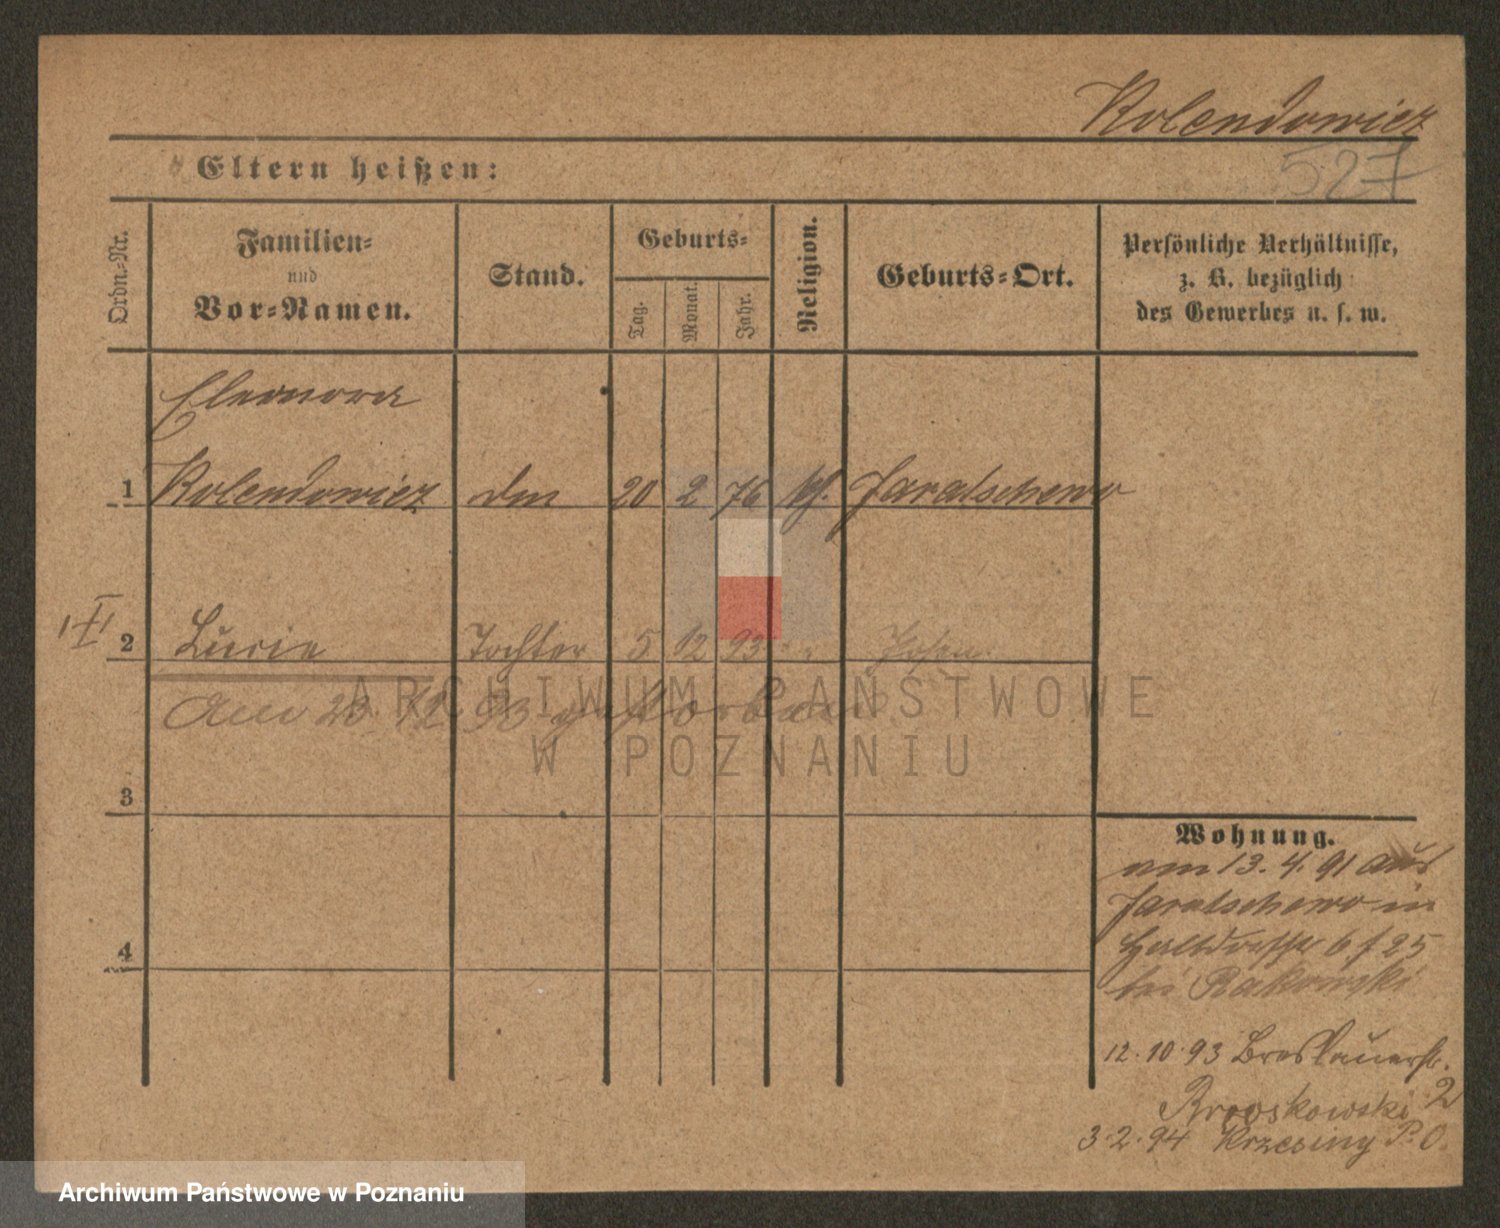 Kolendowicz
527
Eltern heißen:
Ordn.-Nr.
Familien-
und
Vor-Namen.
Stand.
Geburts-
Tag.
Monat.
Jahr.
Religion.
Geburts-Ort.
Persönliche Verhältnisse,
z. B. bezüglich
des Gewerbes u. s. w.
Eleonora
1 Kolendowicz 20 2 76 Jaratschewo
2 Lucie Tochter 5 12 93 Posen
Am 12 93 gestorben
ARCHIWUM PAŃSTWOWE
W POZNANIU
3
4
Wohnung.
am 13. 4. 91 aus
Jaratschewo in
25
bei Rakowski
12. 10. 93 Breslauerstr.
2
3. 2. 94 Krzesiny P. O.
Archiwum Państwowe w Poznaniu